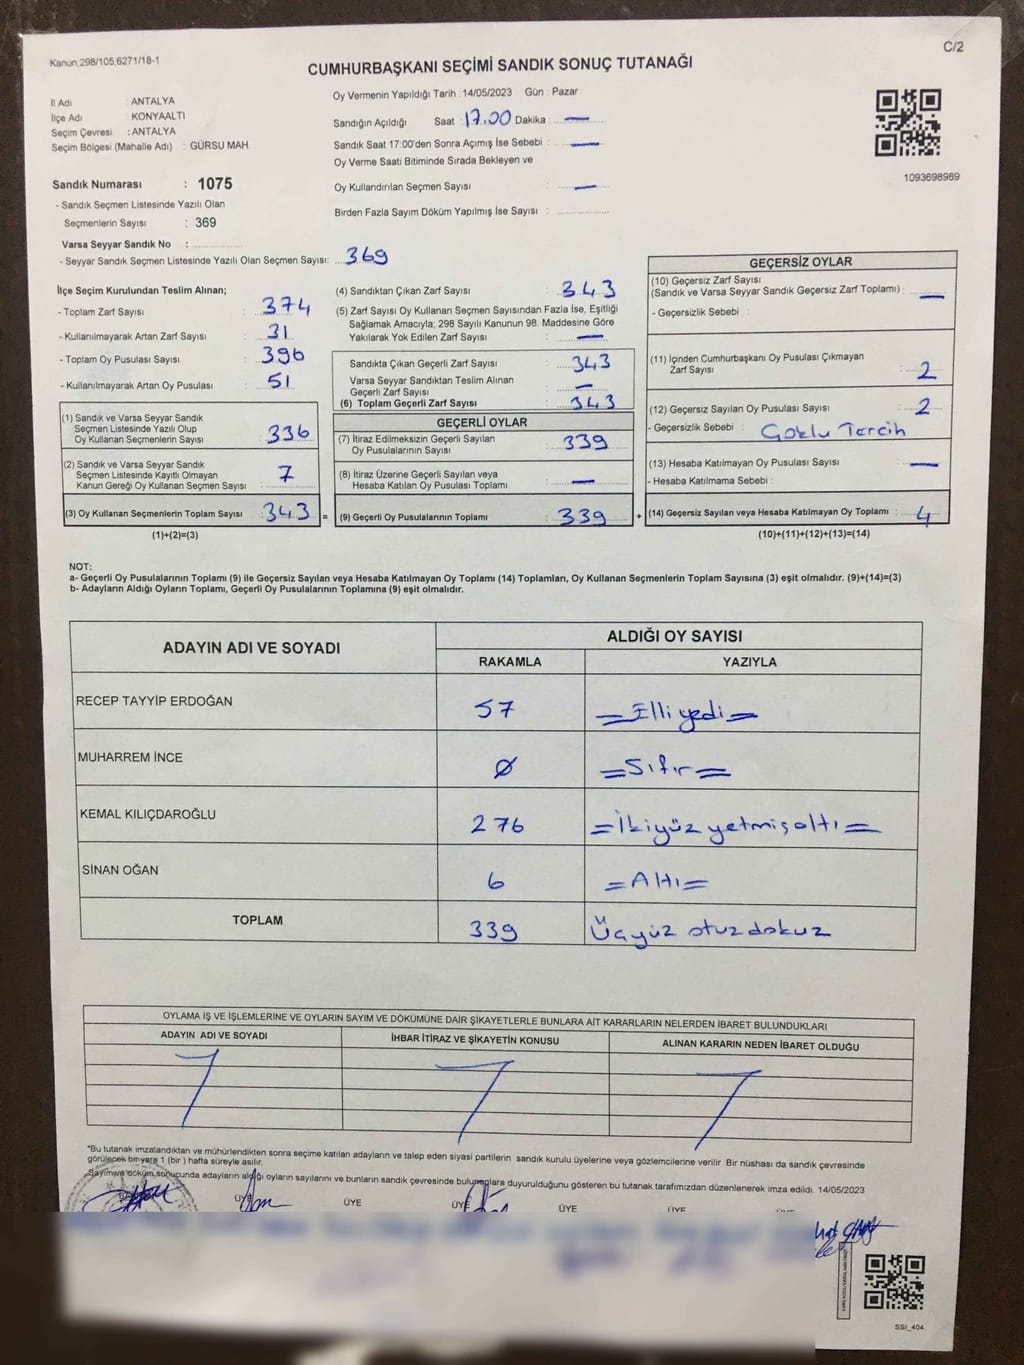 C/2
Kanun,298/105,6271/18-1
CUMHURBAŞKANI SEÇİMİ SANDIK SONUÇ TUTANAĞI
İl Adı : ANTALYA
İlçe Adı : KONYAALTI
Seçim Çevresi : ANTALYA
Seçim Bölgesi (Mahalle Adı) : GÜRSU MAH.
Oy Vermenin Yapıldığı Tarih : 14/05/2023 Gün : Pazar
Sandığın Açıldığı Saat : 17.00 Dakika : —
Sandık Saat 17:00'den Sonra Açımış İse Sebebi : —
Oy Verme Saati Bitiminde Sırada Bekleyen ve
Oy Kullandırılan Seçmen Sayısı : —
Birden Fazla Sayım Döküm Yapılmış İse Sayısı :
1093698989
Sandık Numarası : 1075
- Sandık Seçmen Listesinde Yazılı Olan
Seçmenlerin Sayısı : 369
Varsa Seyyar Sandık No :
- Seyyar Sandık Seçmen Listesinde Yazılı Olan Seçmen Sayısı: 369
İlçe Seçim Kurulundan Teslim Alınan;
- Toplam Zarf Sayısı : 374
- Kullanılmayarak Artan Zarf Sayısı : 31
- Toplam Oy Pusulası Sayısı : 396
- Kullanılmayarak Artan Oy Pusulası : 51
(1) Sandık ve Varsa Seyyar Sandık
Seçmen Listesinde Yazılı Olup
Oy Kullanan Seçmenlerin Sayısı : 336
(2) Sandık ve Varsa Seyyar Sandık
Seçmen Listesinde Kayıtlı Olmayan
Kanun Gereği Oy Kullanan Seçmen Sayısı : 7
(3) Oy Kullanan Seçmenlerin Toplam Sayısı : 343 =
(1)+(2)=(3)
(4) Sandıktan Çıkan Zarf Sayısı : 343
(5) Zarf Sayısı Oy Kullanan Seçmen Sayısından Fazla İse, Eşitliği
Sağlamak Amacıyla; 298 Sayılı Kanunun 98. Maddesine Göre
Yakılarak Yok Edilen Zarf Sayısı : —
Sandıkta Çıkan Geçerli Zarf Sayısı : 343
Varsa Seyyar Sandıktan Teslim Alınan
Geçerli Zarf Sayısı : —
(6) Toplam Geçerli Zarf Sayısı : 343
GEÇERLİ OYLAR
(7) İtiraz Edilmeksizin Geçerli Sayılan
Oy Pusulalarının Sayısı : 339
(8) İtiraz Üzerine Geçerli Sayılan veya
Hesaba Katılan Oy Pusulası Toplamı : —
(9) Geçerli Oy Pusulalarının Toplamı : 339 +
GEÇERSİZ OYLAR
(10) Geçersiz Zarf Sayısı
(Sandık ve Varsa Seyyar Sandık Geçersiz Zarf Toplamı) : —
- Geçersizlik Sebebi :
(11) İçinden Cumhurbaşkanı Oy Pusulası Çıkmayan
Zarf Sayısı : 2
(12) Geçersiz Sayılan Oy Pusulası Sayısı : 2
- Geçersizlik Sebebi : Çoklu Tercih
(13) Hesaba Katılmayan Oy Pusulası Sayısı : —
- Hesaba Katılmama Sebebi :
(14) Geçersiz Sayılan veya Hesaba Katılmayan Oy Toplamı : 4
(10)+(11)+(12)+(13)=(14)
NOT:
a- Geçerli Oy Pusulalarının Toplamı (9) ile Geçersiz Sayılan veya Hesaba Katılmayan Oy Toplamı (14) Toplamları, Oy Kullanan Seçmenlerin Toplam Sayısına (3) eşit olmalıdır. (9)+(14)=(3)
b- Adayların Aldığı Oyların Toplamı, Geçerli Oy Pusulalarının Toplamına (9) eşit olmalıdır.
ADAYIN ADI VE SOYADI ALDIĞI OY SAYISI
RAKAMLA YAZIYLA
RECEP TAYYİP ERDOĞAN 57 =Elliyedi=
MUHARREM İNCE Ø =Sıfır=
KEMAL KILIÇDAROĞLU 276 =İkiyüz yetmişaltı=
SİNAN OĞAN 6 =Altı=
TOPLAM 339 Üçyüz otuzdokuz
OYLAMA İŞ VE İŞLEMLERİNE VE OYLARIN SAYIM VE DÖKÜMÜNE DAİR ŞİKAYETLERLE BUNLARA AİT KARARLARIN NELERDEN İBARET BULUNDUKLARI
ADAYIN ADI VE SOYADI İHBAR İTİRAZ VE ŞİKAYETİN KONUSU ALINAN KARARIN NEDEN İBARET OLDUĞU
*Bu tutanak imzalandıktan ve mühürlendikten sonra seçime katılan adayların ve talep eden siyasi partilerin sandık kurulu üyelerine veya gözlemcilerine verilir Bir nüshası da sandık çevresinde
görülecek bir yere 1 (bir ) hafta süreyle asılır.
Sayım ve döküm sonucunda adayların aldığı oyların sayılarını ve bunların sandık çevresinde bulunanlara duyurulduğunu gösteren bu tutanak tarafımızdan düzenlenerek imza edildi. 14/05/2023
ÜYE ÜYE ÜYE ÜYE ÜYE
SSI_404